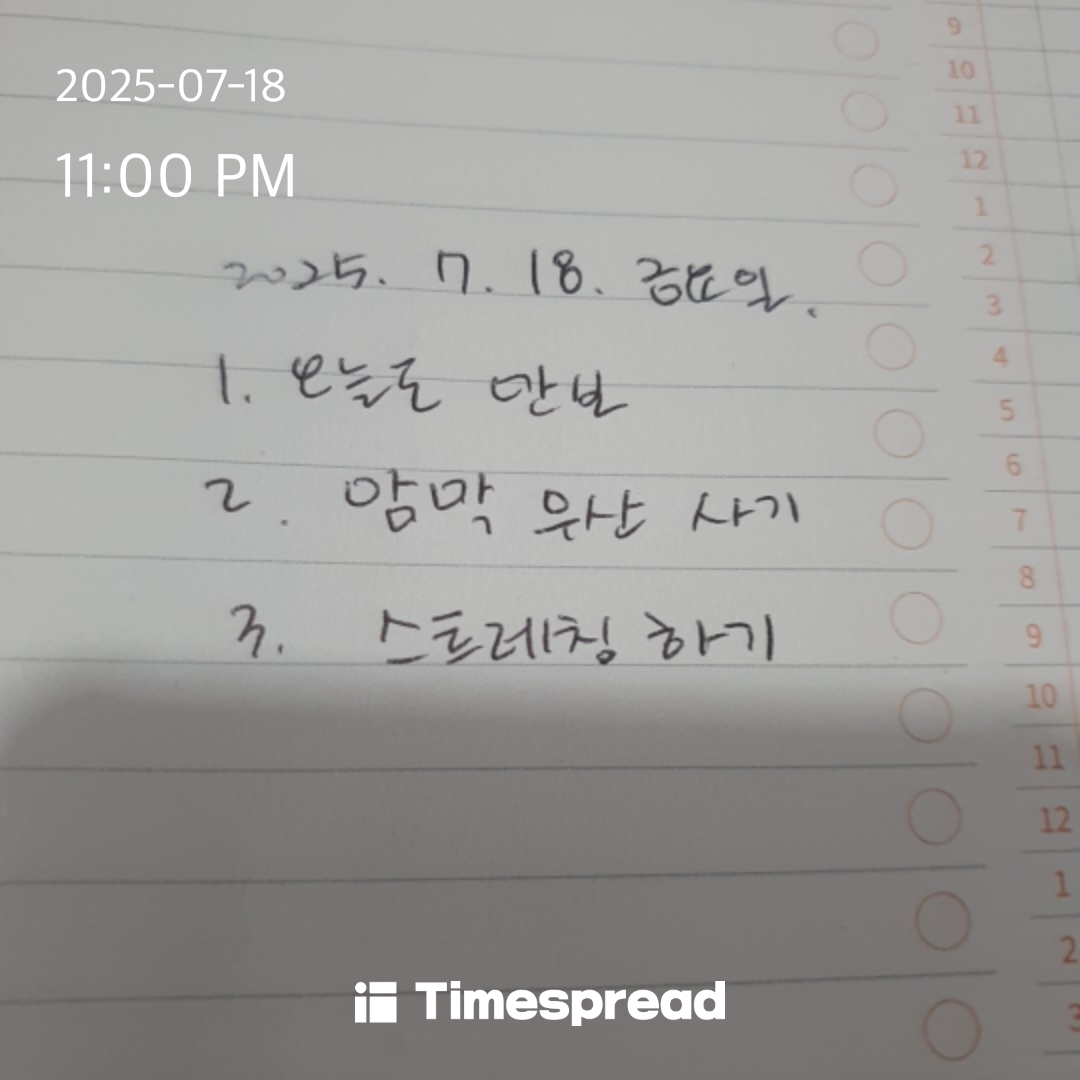 2025-07-18
11:00 PM
2025. 7. 18. 금요일.
1. 오늘도 만보
2. 암막 우산 사기
3. 스트레칭 하기
9
10
11
12
1
2
3
4
5
6
7
8
9
10
11
12
1
2
3
Timespread